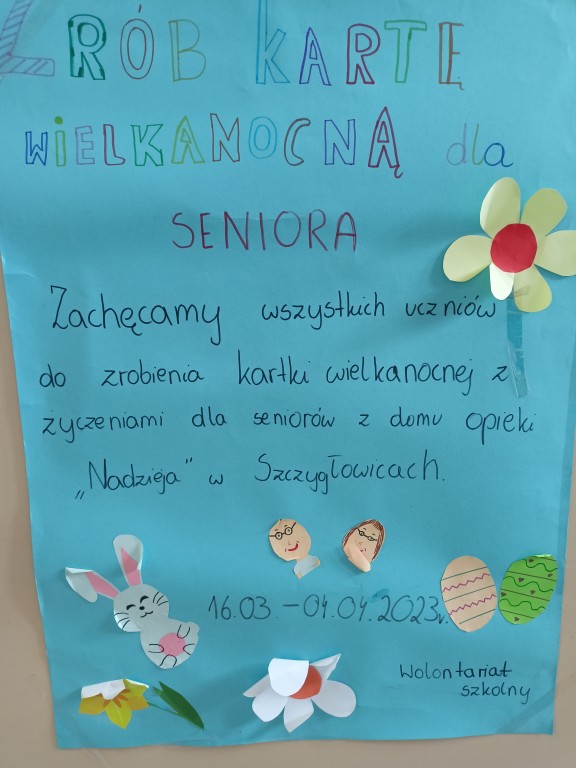 ZRÓB KARTĘ
WIELKANOCNĄ dla
SENIORA
Zachęcamy wszystkich uczniów
do zrobienia kartki wielkanocnej z
życzeniami dla seniorów z domu opieki
„Nadzieja" w Szczygłowicach.
16.03. – 04.04.2023r.
Wolontariat
szkolny